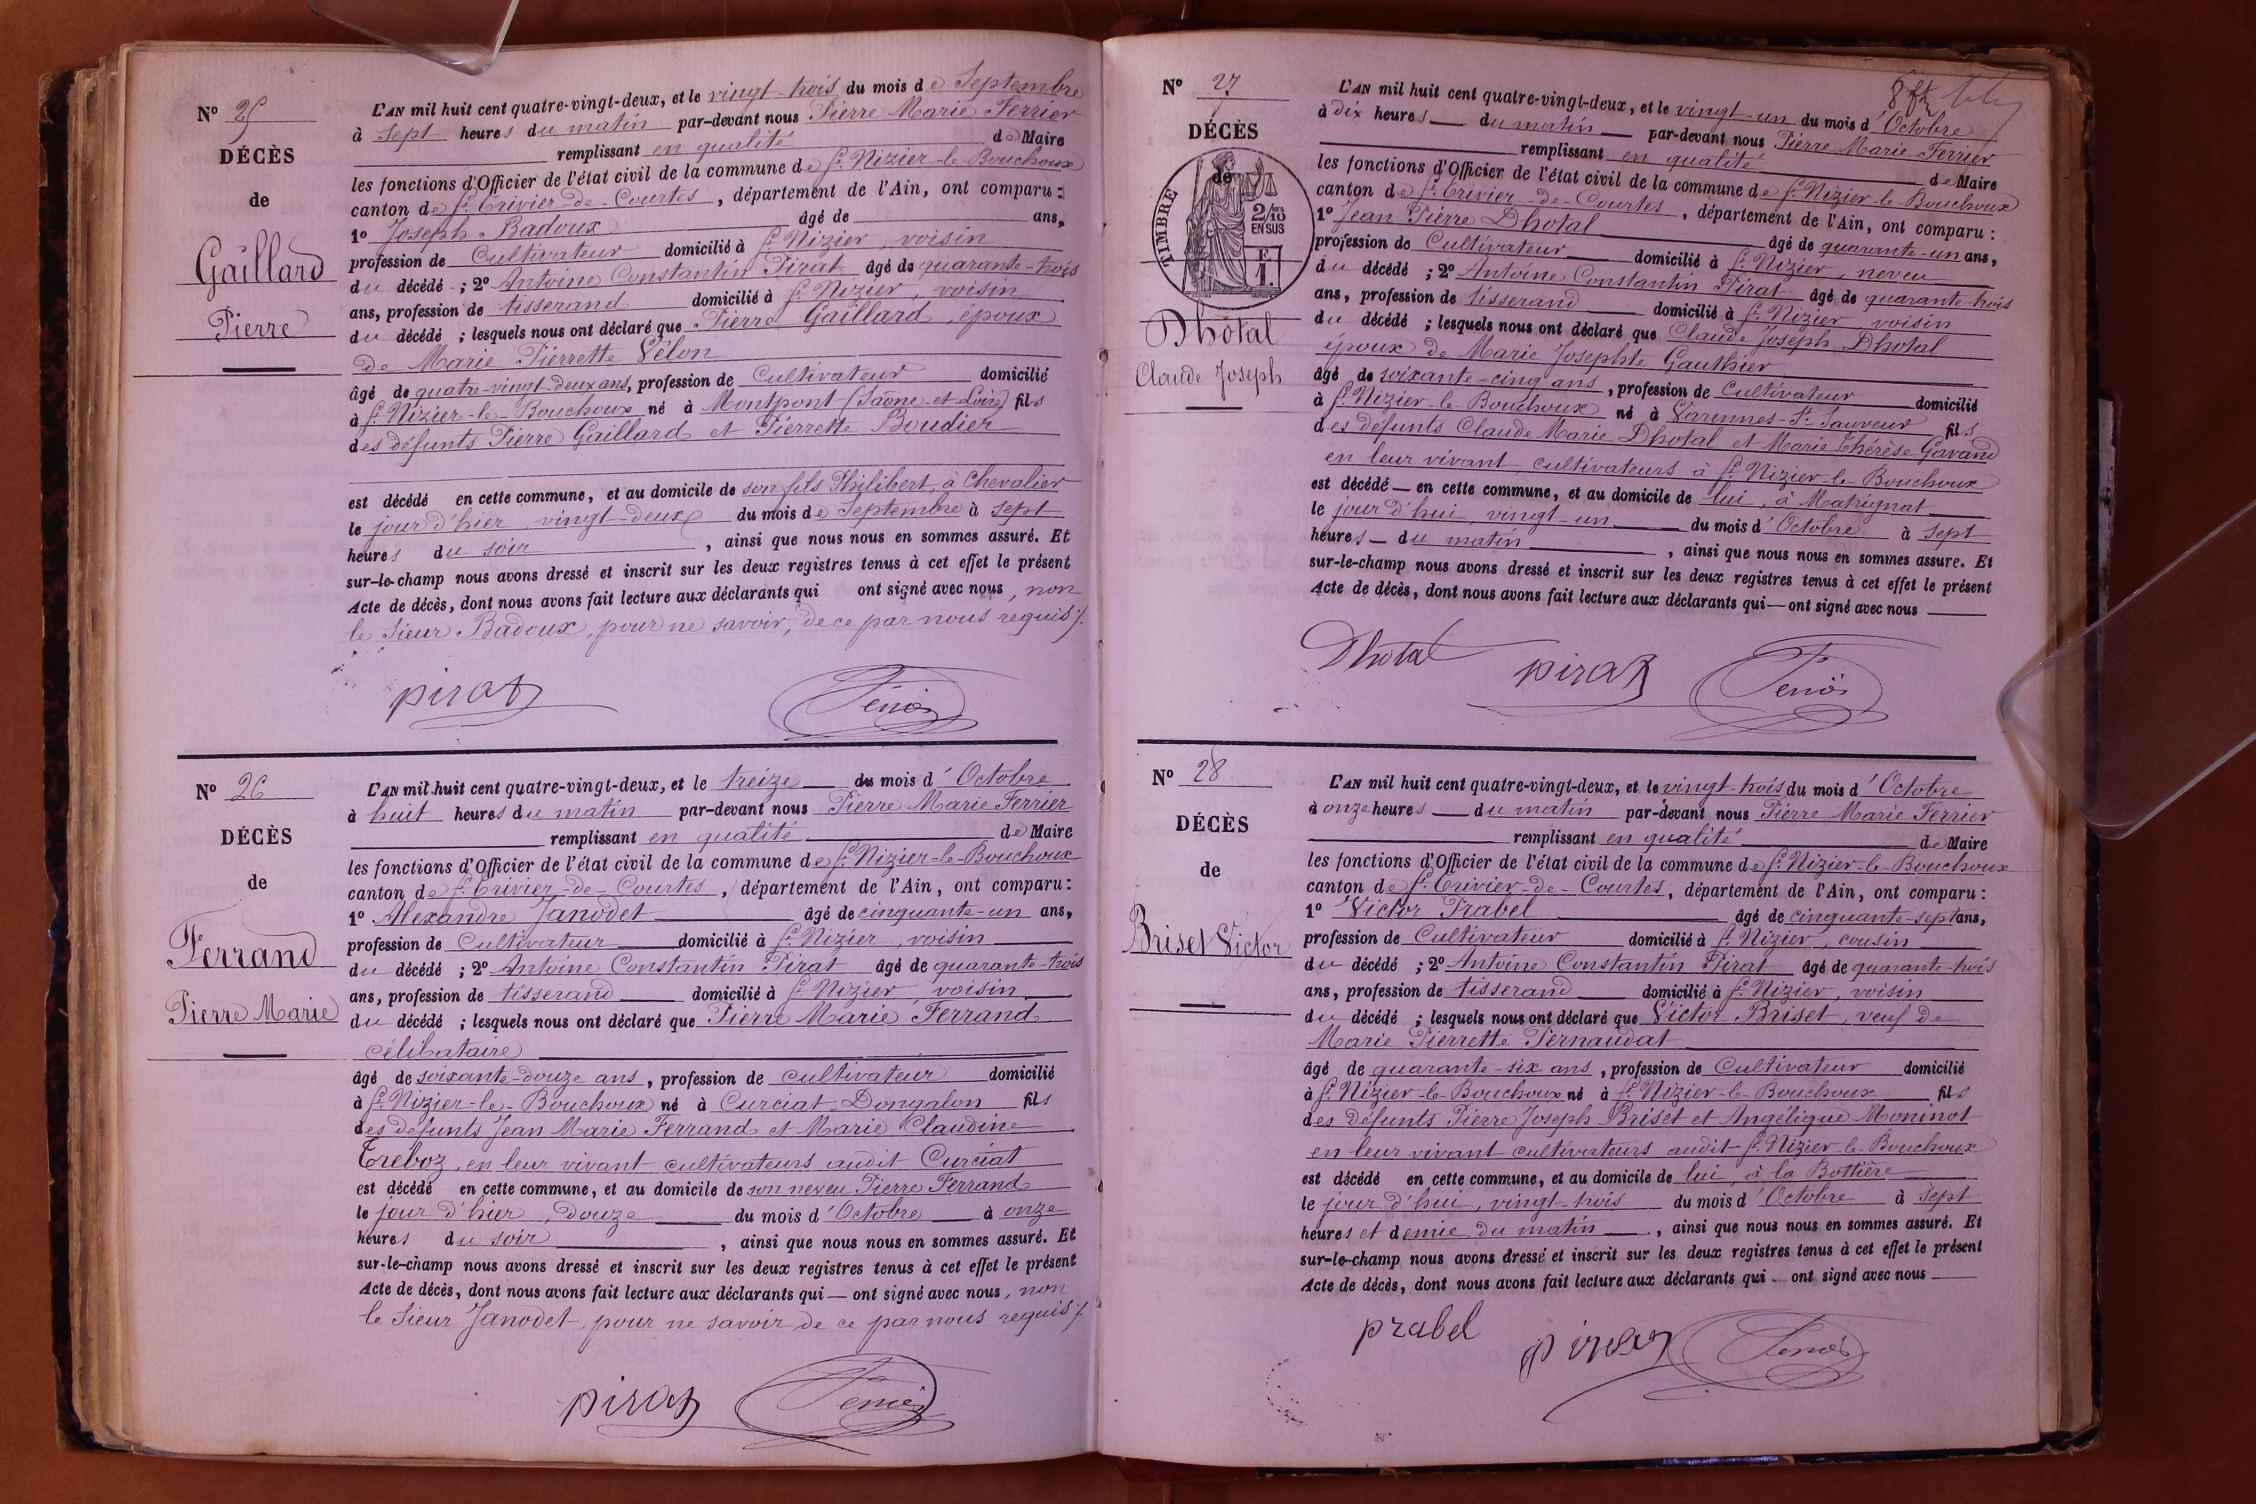 N° 25
DÉCÈS
de
Gaillard
Pierre
L'AN mil huit cent quatre-vingt-deux, et le vingt-trois du mois de Septembre
à sept heures du matin par-devant nous Pierre Marie Ferrier
remplissant en qualité de Maire
les fonctions d'Officier de l'état civil de la commune de St. Nizier-le-Bouchoux
canton de St. Trivier-de-Courtes, département de l'Ain, ont comparu:
1° Joseph Badoux âgé de ans,
profession de Cultivateur domicilié à St. Nizier, voisin
du décédé; 2° Antoine Constantin Pirat âgé de quarante-trois
ans, profession de tisserand domicilié à St. Nizier, voisin
du décédé; lesquels nous ont déclaré que Pierre Gaillard, époux
de Marie Pierrette Vélon
âgé de quatre-vingt-deux ans, profession de Cultivateur domicilié
à St. Nizier-le-Bouchoux né à Montpont (Saône-et-Loire) fils
des défunts Pierre Gaillard et Pierrette Boudier
est décédé en cette commune, et au domicile de son fils Philibert, à Chevalier
le jour d'hier, vingt-deux du mois de Septembre à sept
heures du soir, ainsi que nous nous en sommes assuré. Et
sur-le-champ nous avons dressé et inscrit sur les deux registres tenus à cet effet le présent
Acte de décès, dont nous avons fait lecture aux déclarants qui ont signé avec nous, non
le Sieur Badoux, pour ne savoir, de ce par nous requis./.
pirat
N° 26
DÉCÈS
de
Ferrand
Pierre Marie
L'AN mil huit cent quatre-vingt-deux, et le treize du mois d'Octobre
à huit heures du matin par-devant nous Pierre Marie Ferrier
remplissant en qualité de Maire
les fonctions d'Officier de l'état civil de la commune de St. Nizier-le-Bouchoux
canton de St. Trivier-de-Courtes, département de l'Ain, ont comparu:
1° Alexandre Janodet âgé de cinquante-un ans,
profession de Cultivateur domicilié à St. Nizier, voisin
du décédé; 2° Antoine Constantin Pirat âgé de quarante-trois
ans, profession de tisserand domicilié à St. Nizier, voisin
du décédé; lesquels nous ont déclaré que Pierre Marie Ferrand
célibataire
âgé de soixante-douze ans, profession de cultivateur domicilié
à St. Nizier-le-Bouchoux né à Curciat-Dongalon fils
des défunts Jean Marie Ferrand et Marie Claudine
Treboz, en leur vivant cultivateurs audit Curciat
est décédé en cette commune, et au domicile de son neveu Pierre Ferrand
le jour d'hier, douze du mois d'Octobre à onze
heures du soir, ainsi que nous nous en sommes assuré. Et
sur-le-champ nous avons dressé et inscrit sur les deux registres tenus à cet effet le présent
Acte de décès, dont nous avons fait lecture aux déclarants qui — ont signé avec nous, non
le Sieur Janodet, pour ne savoir de ce par nous requis./.
pirat
N° 27
DÉCÈS
de
TIMBRE
2/10 EN SUS
F 1.
Dhotal
Claude Joseph
L'AN mil huit cent quatre-vingt-deux, et le vingt-un du mois d'Octobre
à dix heures du matin par-devant nous Pierre Marie Ferrier
remplissant en qualité de Maire
les fonctions d'Officier de l'état civil de la commune de St. Nizier-le-Bouchoux
canton de St. Trivier-de-Courtes, département de l'Ain, ont comparu:
1° Jean Pierre Dhotal âgé de quarante-un ans,
profession de Cultivateur domicilié à St. Nizier, neveu
du décédé; 2° Antoine Constantin Pirat âgé de quarante-trois
ans, profession de tisserand domicilié à St. Nizier voisin
du décédé; lesquels nous ont déclaré que Claude Joseph Dhotal
époux de Marie Josephte Gauthier
âgé de soixante-cinq ans, profession de Cultivateur domicilié
à St. Nizier-le-Bouchoux né à Varennes-St. Sauveur fils
des défunts Claude Marie Dhotal et Marie Thérèse Gavand
en leur vivant cultivateurs à St. Nizier-le-Bouchoux
est décédé en cette commune, et au domicile de lui, à Matrignat
le jour d'hui, vingt-un du mois d'Octobre à sept
heures du matin, ainsi que nous nous en sommes assuré. Et
sur-le-champ nous avons dressé et inscrit sur les deux registres tenus à cet effet le présent
Acte de décès, dont nous avons fait lecture aux déclarants qui — ont signé avec nous
Dhotal pirat
N° 28
DÉCÈS
de
Briset Victor
L'AN mil huit cent quatre-vingt-deux, et le vingt-trois du mois d'Octobre
à onze heures du matin par-devant nous Pierre Marie Ferrier
remplissant en qualité de Maire
les fonctions d'Officier de l'état civil de la commune de St. Nizier-le-Bouchoux
canton de St. Trivier-de-Courtes, département de l'Ain, ont comparu:
1° Victor Prabel âgé de cinquante-sept ans,
profession de Cultivateur domicilié à St. Nizier, cousin
du décédé; 2° Antoine Constantin Pirat âgé de quarante-trois
ans, profession de tisserand domicilié à St. Nizier, voisin
du décédé; lesquels nous ont déclaré que Victor Briset, veuf de
Marie Pierrette Pernaudat
âgé de quarante-six ans, profession de Cultivateur domicilié
à St. Nizier-le-Bouchoux né à St. Nizier-le-Bouchoux fils
des défunts Pierre Joseph Briset et Angélique Moninot
en leur vivant cultivateurs audit St. Nizier-le-Bouchoux
est décédé en cette commune, et au domicile de lui, à la Bottière
le jour d'hui, vingt-trois du mois d'Octobre à sept
heures et demie du matin, ainsi que nous nous en sommes assuré. Et
sur-le-champ nous avons dressé et inscrit sur les deux registres tenus à cet effet le présent
Acte de décès, dont nous avons fait lecture aux déclarants qui — ont signé avec nous
prabel pirat